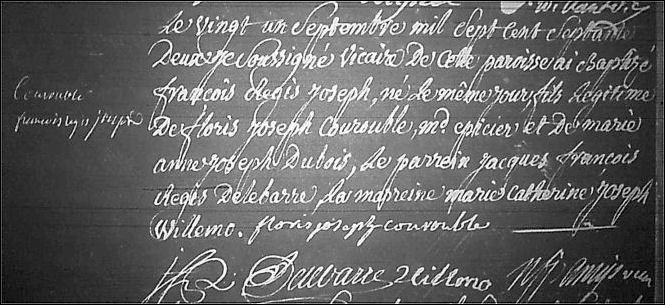 Le vingt un Septembre mil Sept Cent Septante
Deux je soussigné Vicaire De Cette paroisse ai Baptizé
Couroublé
françois Regis Joseph, né le même jour, fils Légitime
francois regis joseph
De floris Joseph Courouble, md epicier et De marie
anne joseph Dubois, Le parrein jacques françois
Regis Delebarre, La mareine marie Catherine Joseph
Willemo. floris joseph courouble
Delebarre Willemo